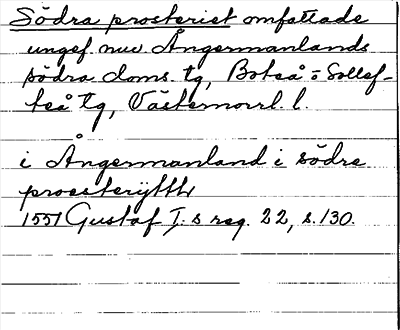 Södra prosteriet omfattade
ungef. nuv. Ångermanlands
södra doms. tg, Boteå = Sollef-
teå tg, Västernorrl. l.
i Ångermanland i södre
proesterijtthr
1551 Gustaf I:s reg. 22, s. 130.